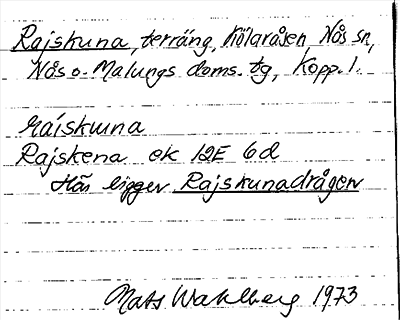 Rajskuna, terräng, Kölaråsen, Nås sn,
Nås o. Malungs doms. tg, Kopp. l.
ráiskuna
Rajskena ek 12E 6d
Här ligger Rajskunadrågen
Mats Wahlberg 1973